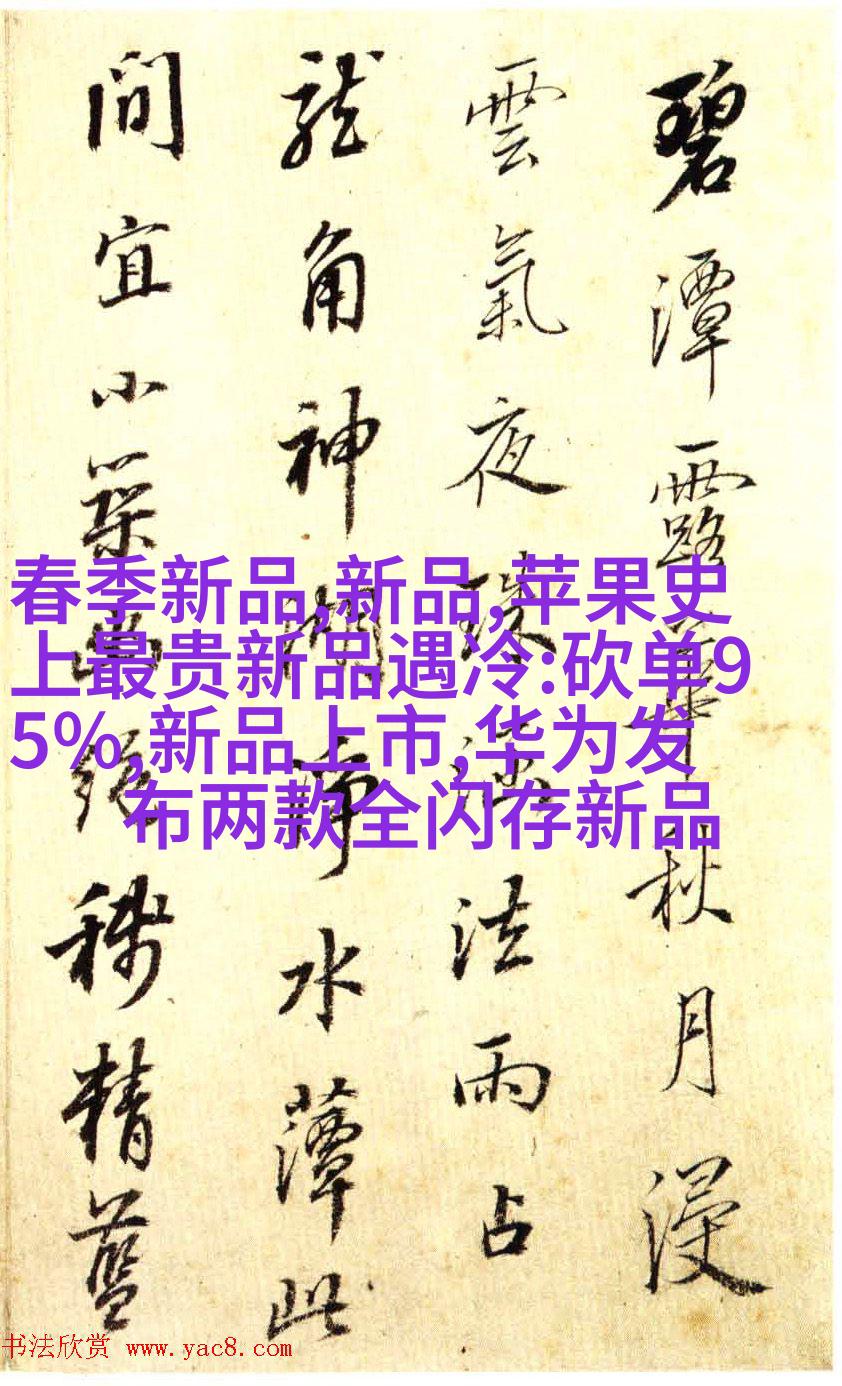 碧潭露華秋月浸
雲氣夜珠法雨占
龍角神湖淨水薲此
間宜小築幽絕稱精藍
春季新品,新品,苹果史
上最贵新品遇冷:砍单9
5%,新品上市,华为发
布两款全闪存新品
书法欣赏 www.yac8.com